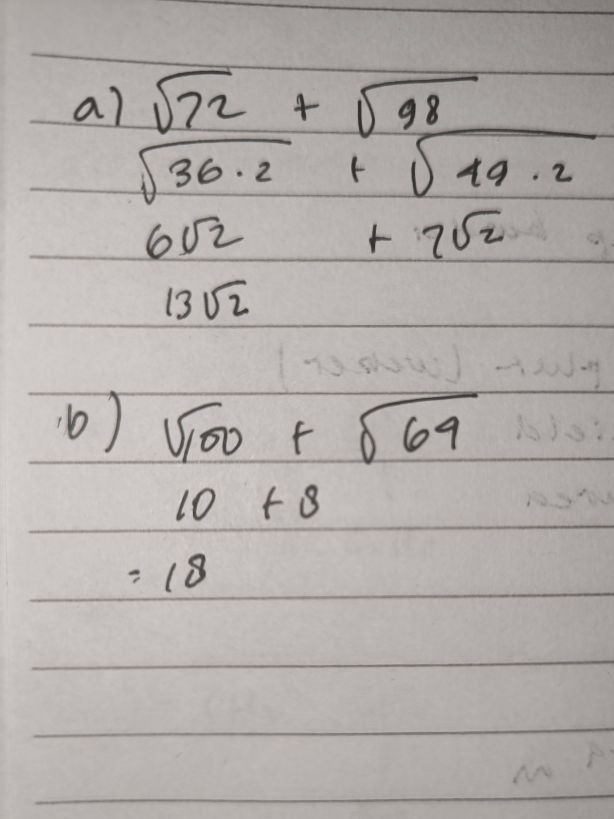 a) √72 + √98
√36.2 + √49.2
6√2 + 7√2
13√2
b) √100 + √64
10 + 8
= 18